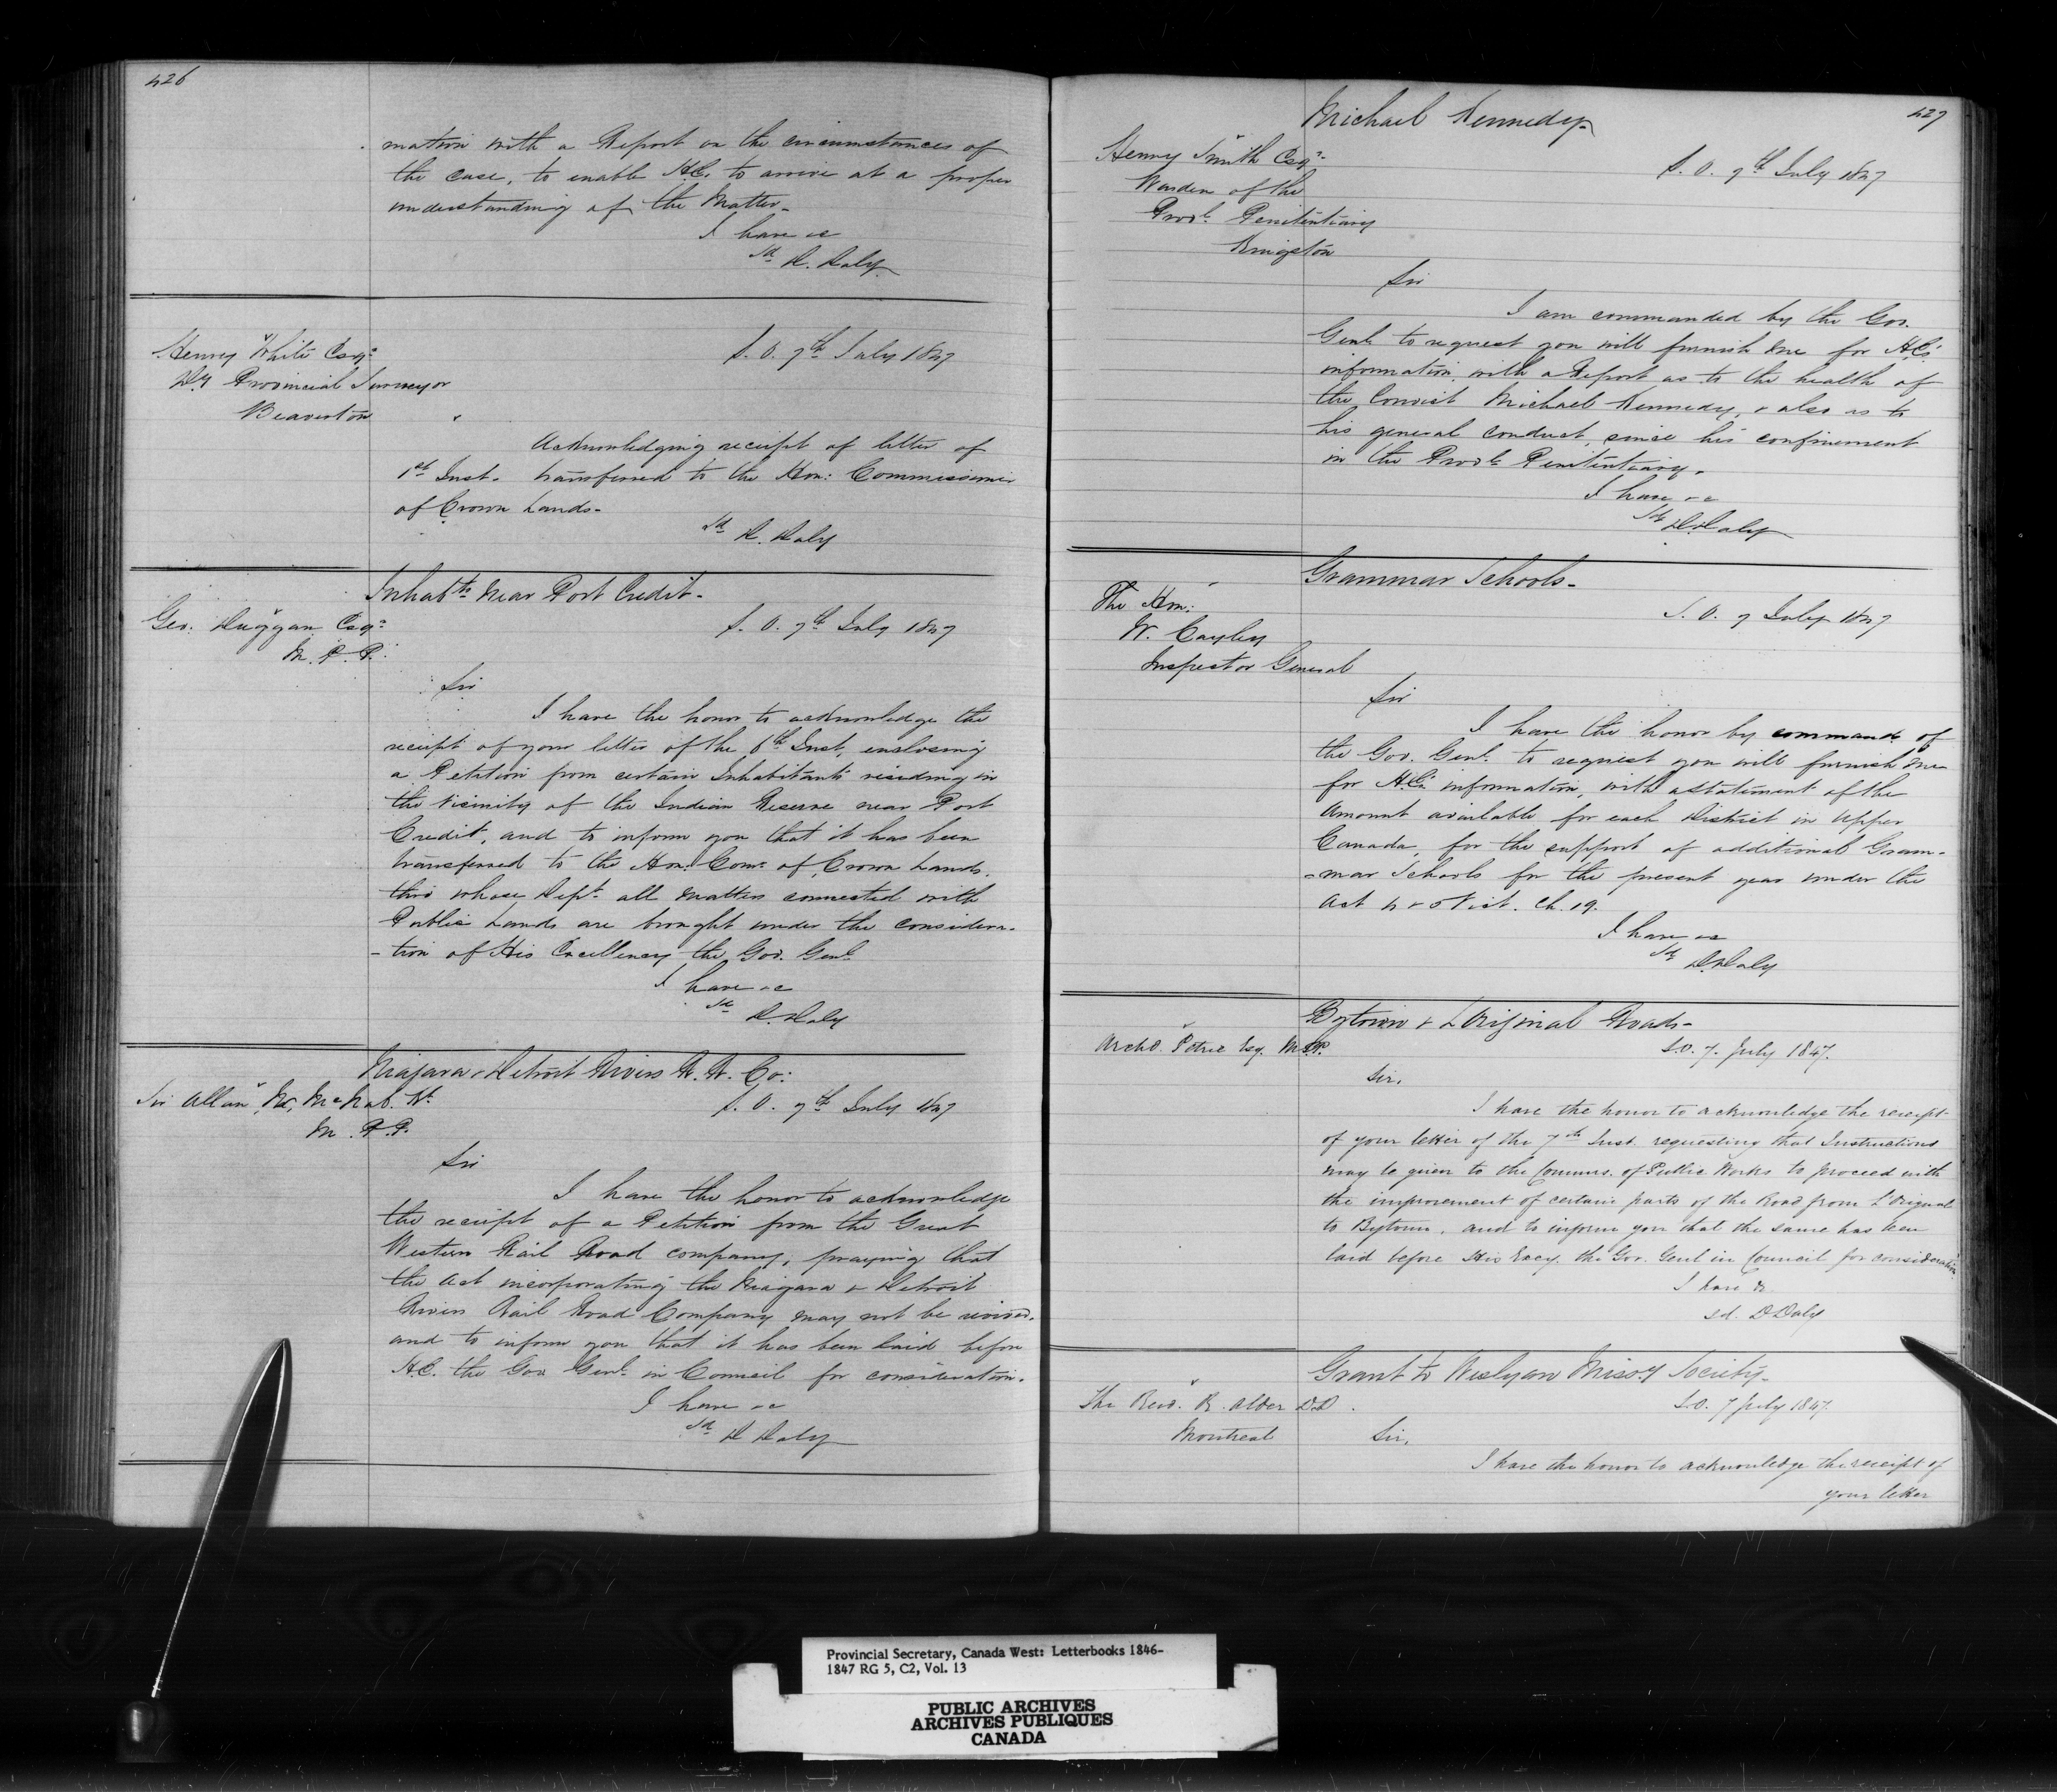 426
mation with a Report on the circumstances of
the case, to enable H.E. to arrive at a proper
understanding of the Matter_
I have &c
Sd D. Daly
Henry White Esqr
Dy Provincial Surveyor
Beaverton
S. O. 7th July 1847
Acknowledging receipt of letter of
1st Inst. transferred to the Hon: Commissioner
of Crown Lands_
Sd D. Daly
Inhabts near Port Credit_
Geo: Duggan Esqr
M. P. P.
S. O. 7th July 1847
Sir
I have the honor to acknowledge the
receipt of your letter of the 6th Inst, enclosing
a Petition from certain Inhabitants residing in
the vicinity of the Indian Reserve near Port
Credit, and to inform you that it has been
transferred to the Hon: Comr of Crown Lands.
thro whose Dept all matters connected with
Public Lands are brought under the considera-
-tion of His Excellency the Gov. Genl
I have &c
Sd D. Daly
Niagara & Detroit Rivers R. R. Co:
Sir Allan N. McNab. Kt
M. P. P.
S. O. 7th July 1847
Sir
I have the honor to acknowledge
the receipt of a Petition from the Great
Western Rail Road company, praying that
the act incorporating the Niagara & Detroit
Rivers Rail Road Company may not be revived.
and to inform you that it has been laid before
H.E. the Gov Genl in Council for consideration.
I have &c
Sd D Daly
427
Michael Kennedy_
Henry Smith Esqr
Warden of the
Provl Penitentiary
Kingston
S. O. 7th July 1847
Sir
I am commanded by the Gov.
Genl to request you will furnish me for H.E's
information, with a Report as to the health of
the Convict Michael Kennedy, & also as to
his general conduct, since his confinement
in the Provl Penitentiary.
I have &c
Sd D. Daly
Grammar Schools_
The Hon:
W. Cayley
Inspector General
S. O. 7 July 1847
Sir
I have the honor by command of
the Gov. Genl to request you will furnish me
for H.E's information, with a statement of the
Amount available for each District in Upper
Canada, for the support of additional Gram-
-mar Schools for the present year under the
Act 4 & 5 Vict. Ch. 19.
I have &c
Sd D. Daly
Bytown & L'Original Roads_
Archd. Petrie Esq. M.P.P.
S.O. 7. July 1847.
Sir,
I have the honor to acknowledge the receipt
of your letter of the 7th Inst. requesting that Instructions
may be given to the Commrs. of Public Works to proceed with
the improvement of certain parts of the Road from L'Orignal
to Bytown, and to inform you that the same has been
laid before His Excy. the Gov. Genl in Council for consideration
I have &
sd. D Daly
Grant to Weslyan Missy Society_
The Revd. R. Alder D.D.
Montreal
S.O. 7 July 1847.
Sir,
I have the honor to acknowledge the receipt of
your letter
Provincial Secretary, Canada West: Letterbooks 1846-
1847 RG 5, C2, Vol. 13
PUBLIC ARCHIVES
ARCHIVES PUBLIQUES
CANADA